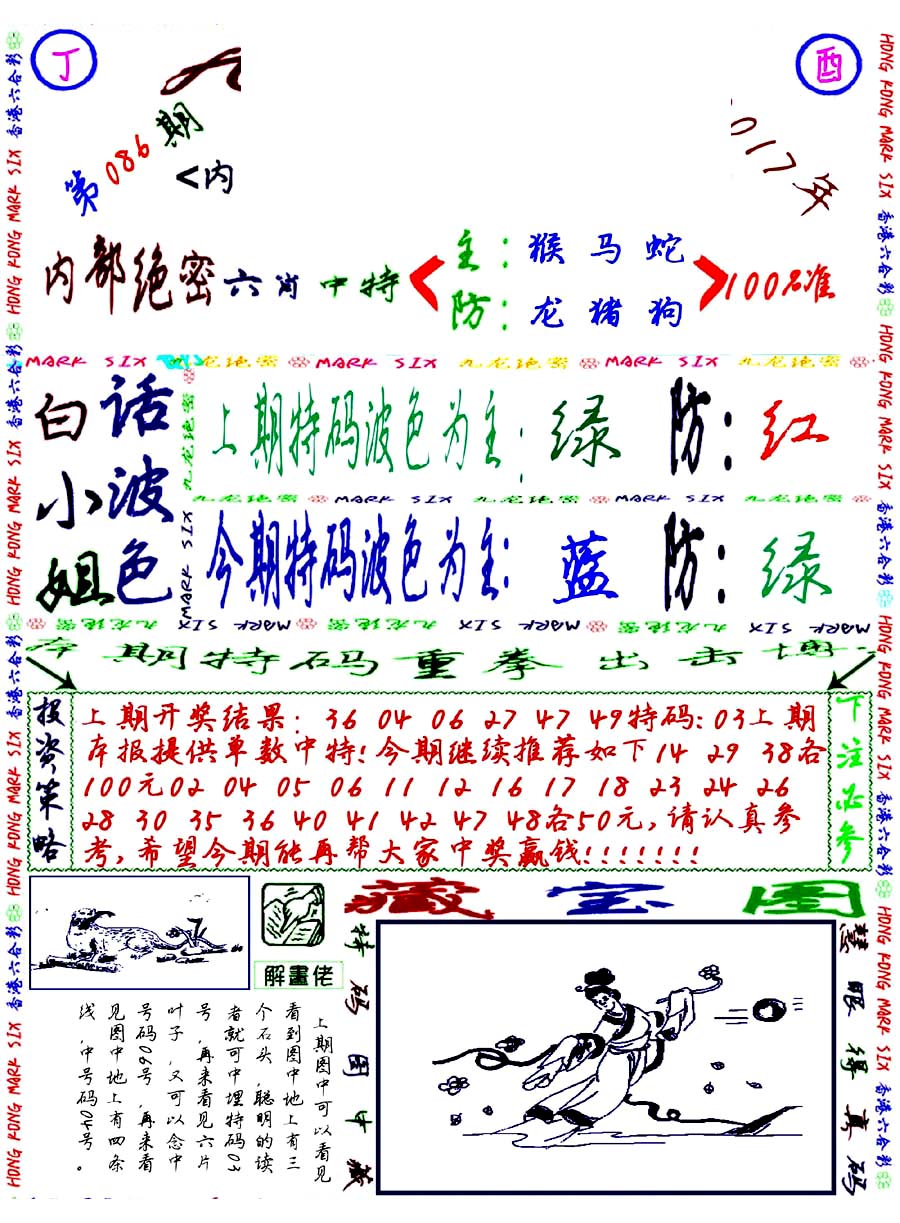 丁
酉
第086期
<内
2017年
内部绝密六肖中特
主:猴马蛇
防:龙猪狗
100%准
MARK SIX 九龙绝密 MARK SIX 九龙绝密 MARK SIX 九龙绝密
白小姐
话波色
上期特码波色为主:绿 防:红
九龙绝密 MARK SIX 九龙绝密 MARK SIX 九龙绝密
今期特码波色为主:蓝 防:绿
九龙绝密 MARK SIX 九龙绝密 MARK SIX 九龙绝密 MARK SIX
本期特码重拳出击博
投资策略
上期开奖结果:36 04 06 27 47 49特码:03上期
本报提供单数中特!今期继续推荐如下14 29 38各
100元02 04 05 06 11 12 16 17 18 23 24 26
28 30 35 36 40 41 42 47 48各50元,请认真参
考,希望今期能再帮大家中奖赢钱!!!!!!!
下注必参
藏宝图
解畫佬
上期图中可以看见
看到图中地上有三
个石头,聪明的读
者就可中埋特码03
号,再来看见六片
叶子,又可以念中
号码06号,再来看
见图中地上有四条
线,中号码04号。
特码图中藏
慧眼得真码
香港六合彩 HONG KONG MARK SIX 香港六合彩 HONG KONG MARK SIX 香港六合彩 HONG KONG MARK SIX 香港六合彩 HONG KONG MARK SIX
HONG KONG MARK SIX 香港六合彩 HONG KONG MARK SIX 香港六合彩 HONG KONG MARK SIX 香港六合彩 HONG KONG MARK SIX 香港六合彩